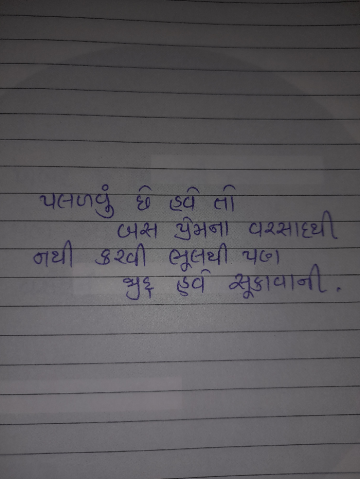 પલળવું છે હવે તો
બસ પ્રેમના વરસાદથી
નથી કરવી ભૂલથી પણ
જીદ હવે સૂકાવાની.